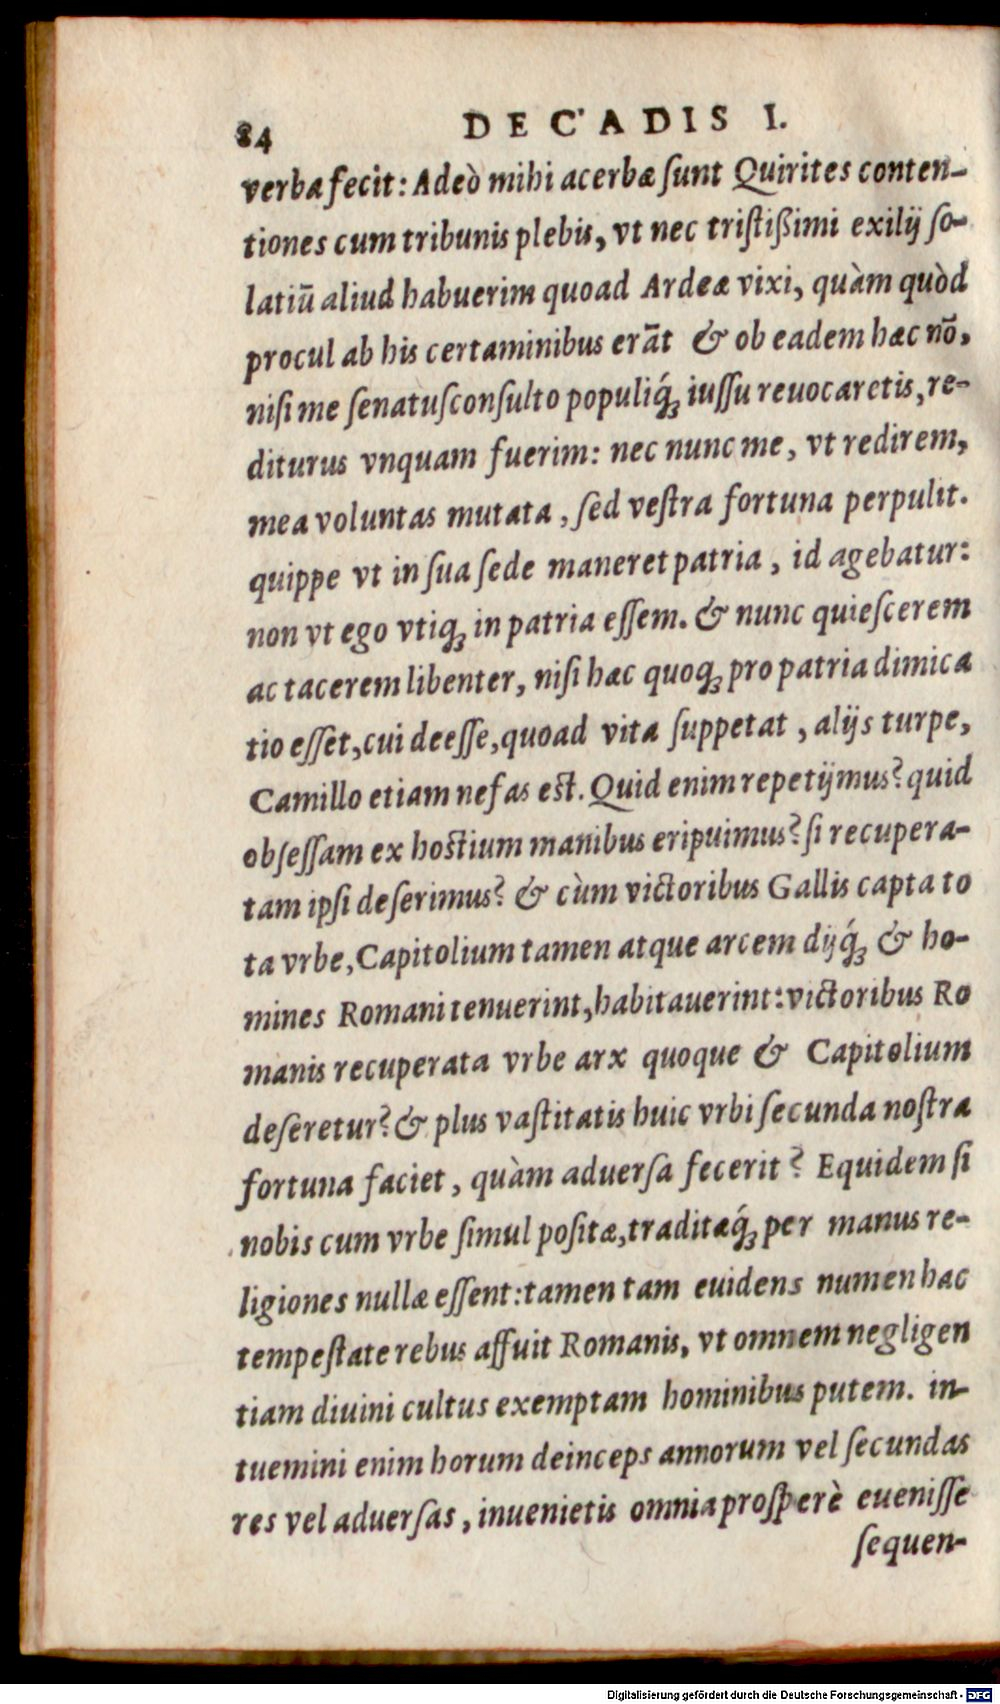 84 DECADIS I.
verba fecit: Adeò mihi acerbæ ſunt Quirites conten-
tiones cum tribunis plebis, vt nec triſtißimi exilij ſo-
latiũ aliud habuerim quoad Ardeæ vixi, quàm quòd
procul ab his certaminibus erãt & ob eadem hæc nõ,
niſi me ſenatuſconſulto populiq́ꝫ iuſſu reuocaretis, re-
diturus vnquam fuerim: nec nunc me, vt redirem,
mea voluntas mutata, ſed veſtra fortuna perpulit.
quippe vt in ſua ſede maneret patria, id agebatur:
non vt ego vtiqꝫ in patria eſſem. & nunc quieſcerem
ac tacerem libenter, niſi hæc quoqꝫ pro patria dimica
tio eſſet, cui deeſſe, quoad vita ſuppetat, alijs turpe,
Camillo etiam nefas eſt. Quid enim repetijmus? quid
obſeſſam ex hoſtium manibus eripuimus? ſi recupera-
tam ipſi deſerimus? & cùm victoribus Gallis capta to
ta vrbe, Capitolium tamen atque arcem dijq́ꝫ & ho-
mines Romani tenuerint, habitauerint: victoribus Ro
manis recuperata vrbe arx quoque & Capitolium
deſeretur? & plus vaſtitatis huic vrbi ſecunda noſtra
fortuna faciet, quàm aduerſa fecerit? Equidem ſi
nobis cum vrbe ſimul poſitæ, traditæq́ꝫ per manus re-
ligiones nullæ eſſent: tamen tam euidens numen hac
tempeſtate rebus affuit Romanis, vt omnem negligen
tiam diuini cultus exemptam hominibus putem. in-
tuemini enim horum deinceps annorum vel ſecundas
res vel aduerſas, inuenietis omnia proſperè eueniſſe
ſequen-
Digitalisierung gefördert durch die Deutsche Forschungsgemeinschaft - DFG